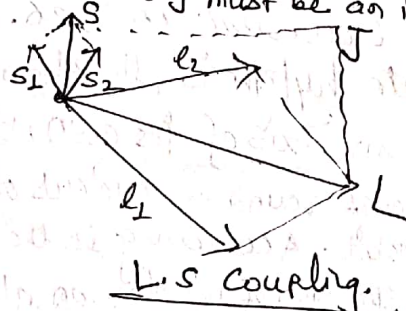 J must be an i
S
J
S1 S2
l2
L
l1
L.S Coupling.